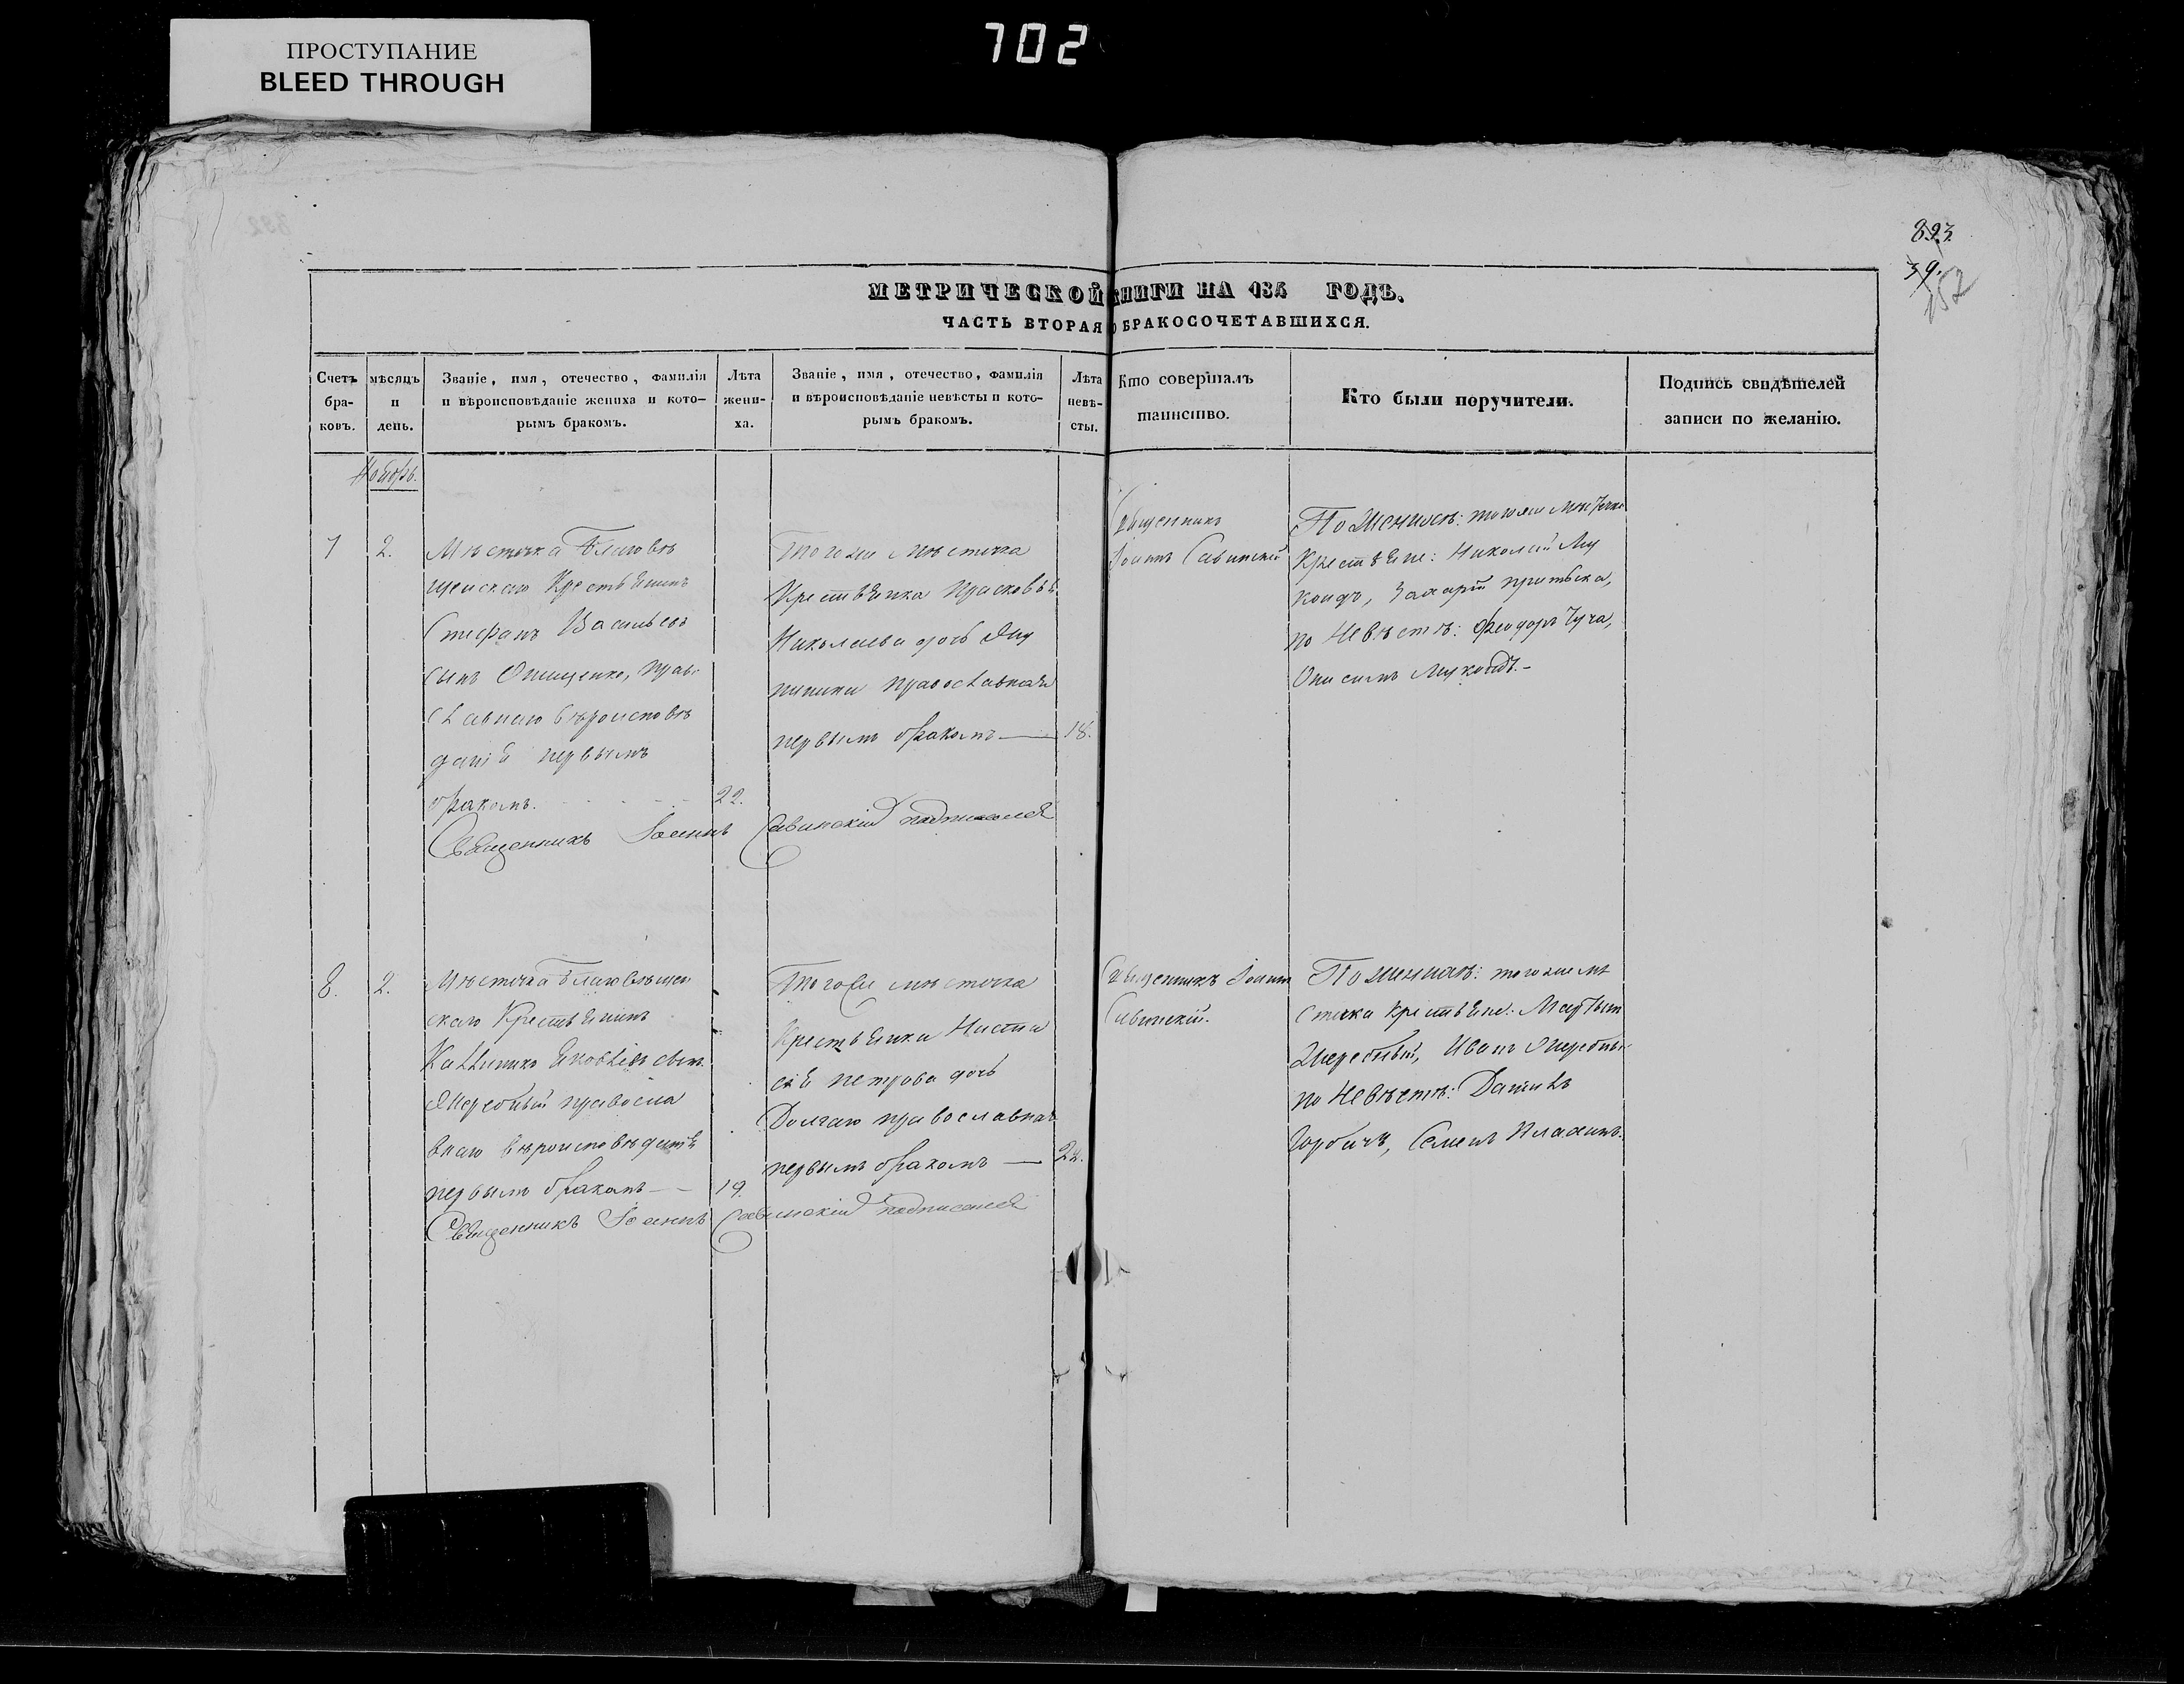 ПРОСТУПАНИЕ
BLEED THROUGH
702
893
39.
152
МЕТРИЧЕСКОЙ КНИГИ НА 185 ГОДЪ.
ЧАСТЬ ВТОРАЯ О БРАКОСОЧЕТАВШИХСЯ.
Счетъ бра-ковъ.
мѣсяцъ и день.
Званіе, имя, отечество, фамилія
и вѣроисповѣданіе жениха и кото-
рымъ бракомъ.
Лѣта жени-ха.
Званіе, имя, отечество, фамилія
и вѣроисповѣданіе невѣсты и кото-
рымъ бракомъ.
Лѣта невѣ-сты.
Кто совершалъ
таинство.
Кто были поручители.
Подпись свидѣтелей
записи по желанію.
Ноябрь.
7
2.
Мѣстечка Благовѣ
щенскаго Крестьянинъ
Стефанъ Васильевъ
сынъ Онищенко, право
славнаго вѣроисповѣ
данія первымъ
бракомъ.
22.
Тогоже мѣстечка
Крестьянка Прасковья
Николаева дочь
православная
первымъ бракомъ
18.
Священникъ
Іоаннъ Савинскій
По Женихѣ: тогоже мѣстечка
Крестьяне: Николай Му
кондъ, Захарій Притыка,
по Невѣстѣ: Феодоръ Чуча,
Онисимъ Мукондъ.
Священникъ Іоаннъ Савинскій подписался
8.
2.
Мѣстечка Благовѣщен
скаго Крестьянинъ
Каллиникъ Яковлевъ сынъ
Жеребный правосла
внаго вѣроисповѣданія
первымъ бракомъ
19.
Тогоже мѣстечка
Крестьянка Наста
сія Петрова дочь
Долгаго православная
первымъ бракомъ
22.
Священникъ Іоаннъ
Савинскій.
По женихѣ: тогоже мѣ
стечка Крестьяне: Мартынъ
Жеребный, Иванъ Жеребный
по Невѣстѣ: Даниилъ
Горбачъ, Семенъ
Священникъ Іоаннъ Савинскій подписался